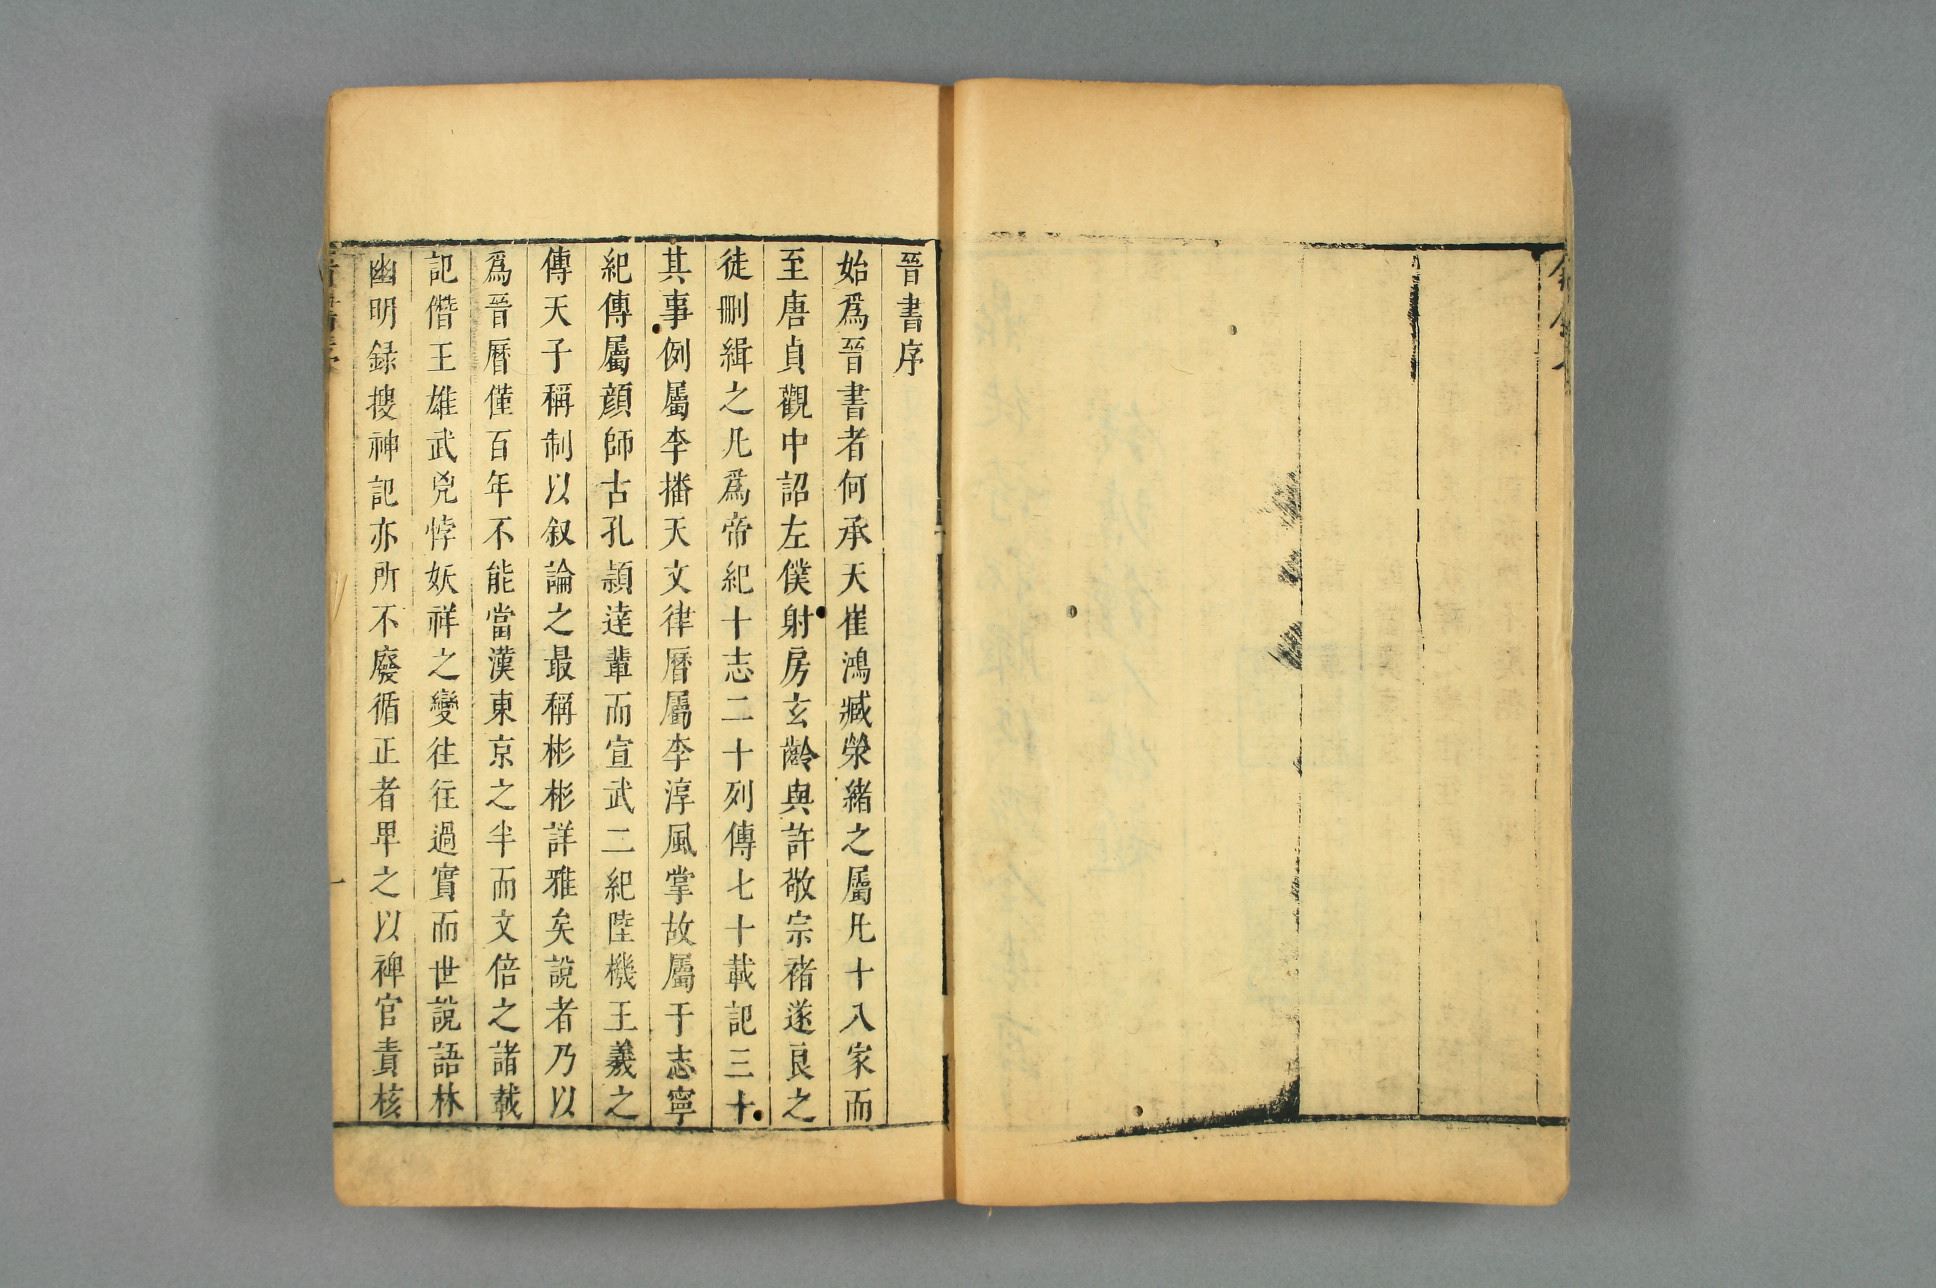 晉書序
始爲晉書者何承天崔鴻臧榮緒之屬凡十八家而
至唐貞觀中詔左僕射房玄齡與許敬宗褚遂良之
徒刪緝之凡爲帝紀十志二十列傳七十載記三十
其事例屬李播天文律曆屬李淳風掌故屬于志寧
紀傳屬顏師古孔穎達輩而宣武二紀陸機王羲之
傳天子稱制以叙論之最稱彬彬詳雅矣說者乃以
爲晉曆僅百年不能當漢東京之半而文倍之諸載
記僭王雄武兇悖妖祥之變往往過實而世說語林
幽明録搜神記亦所不廢循正者卑之以裨官責核
一